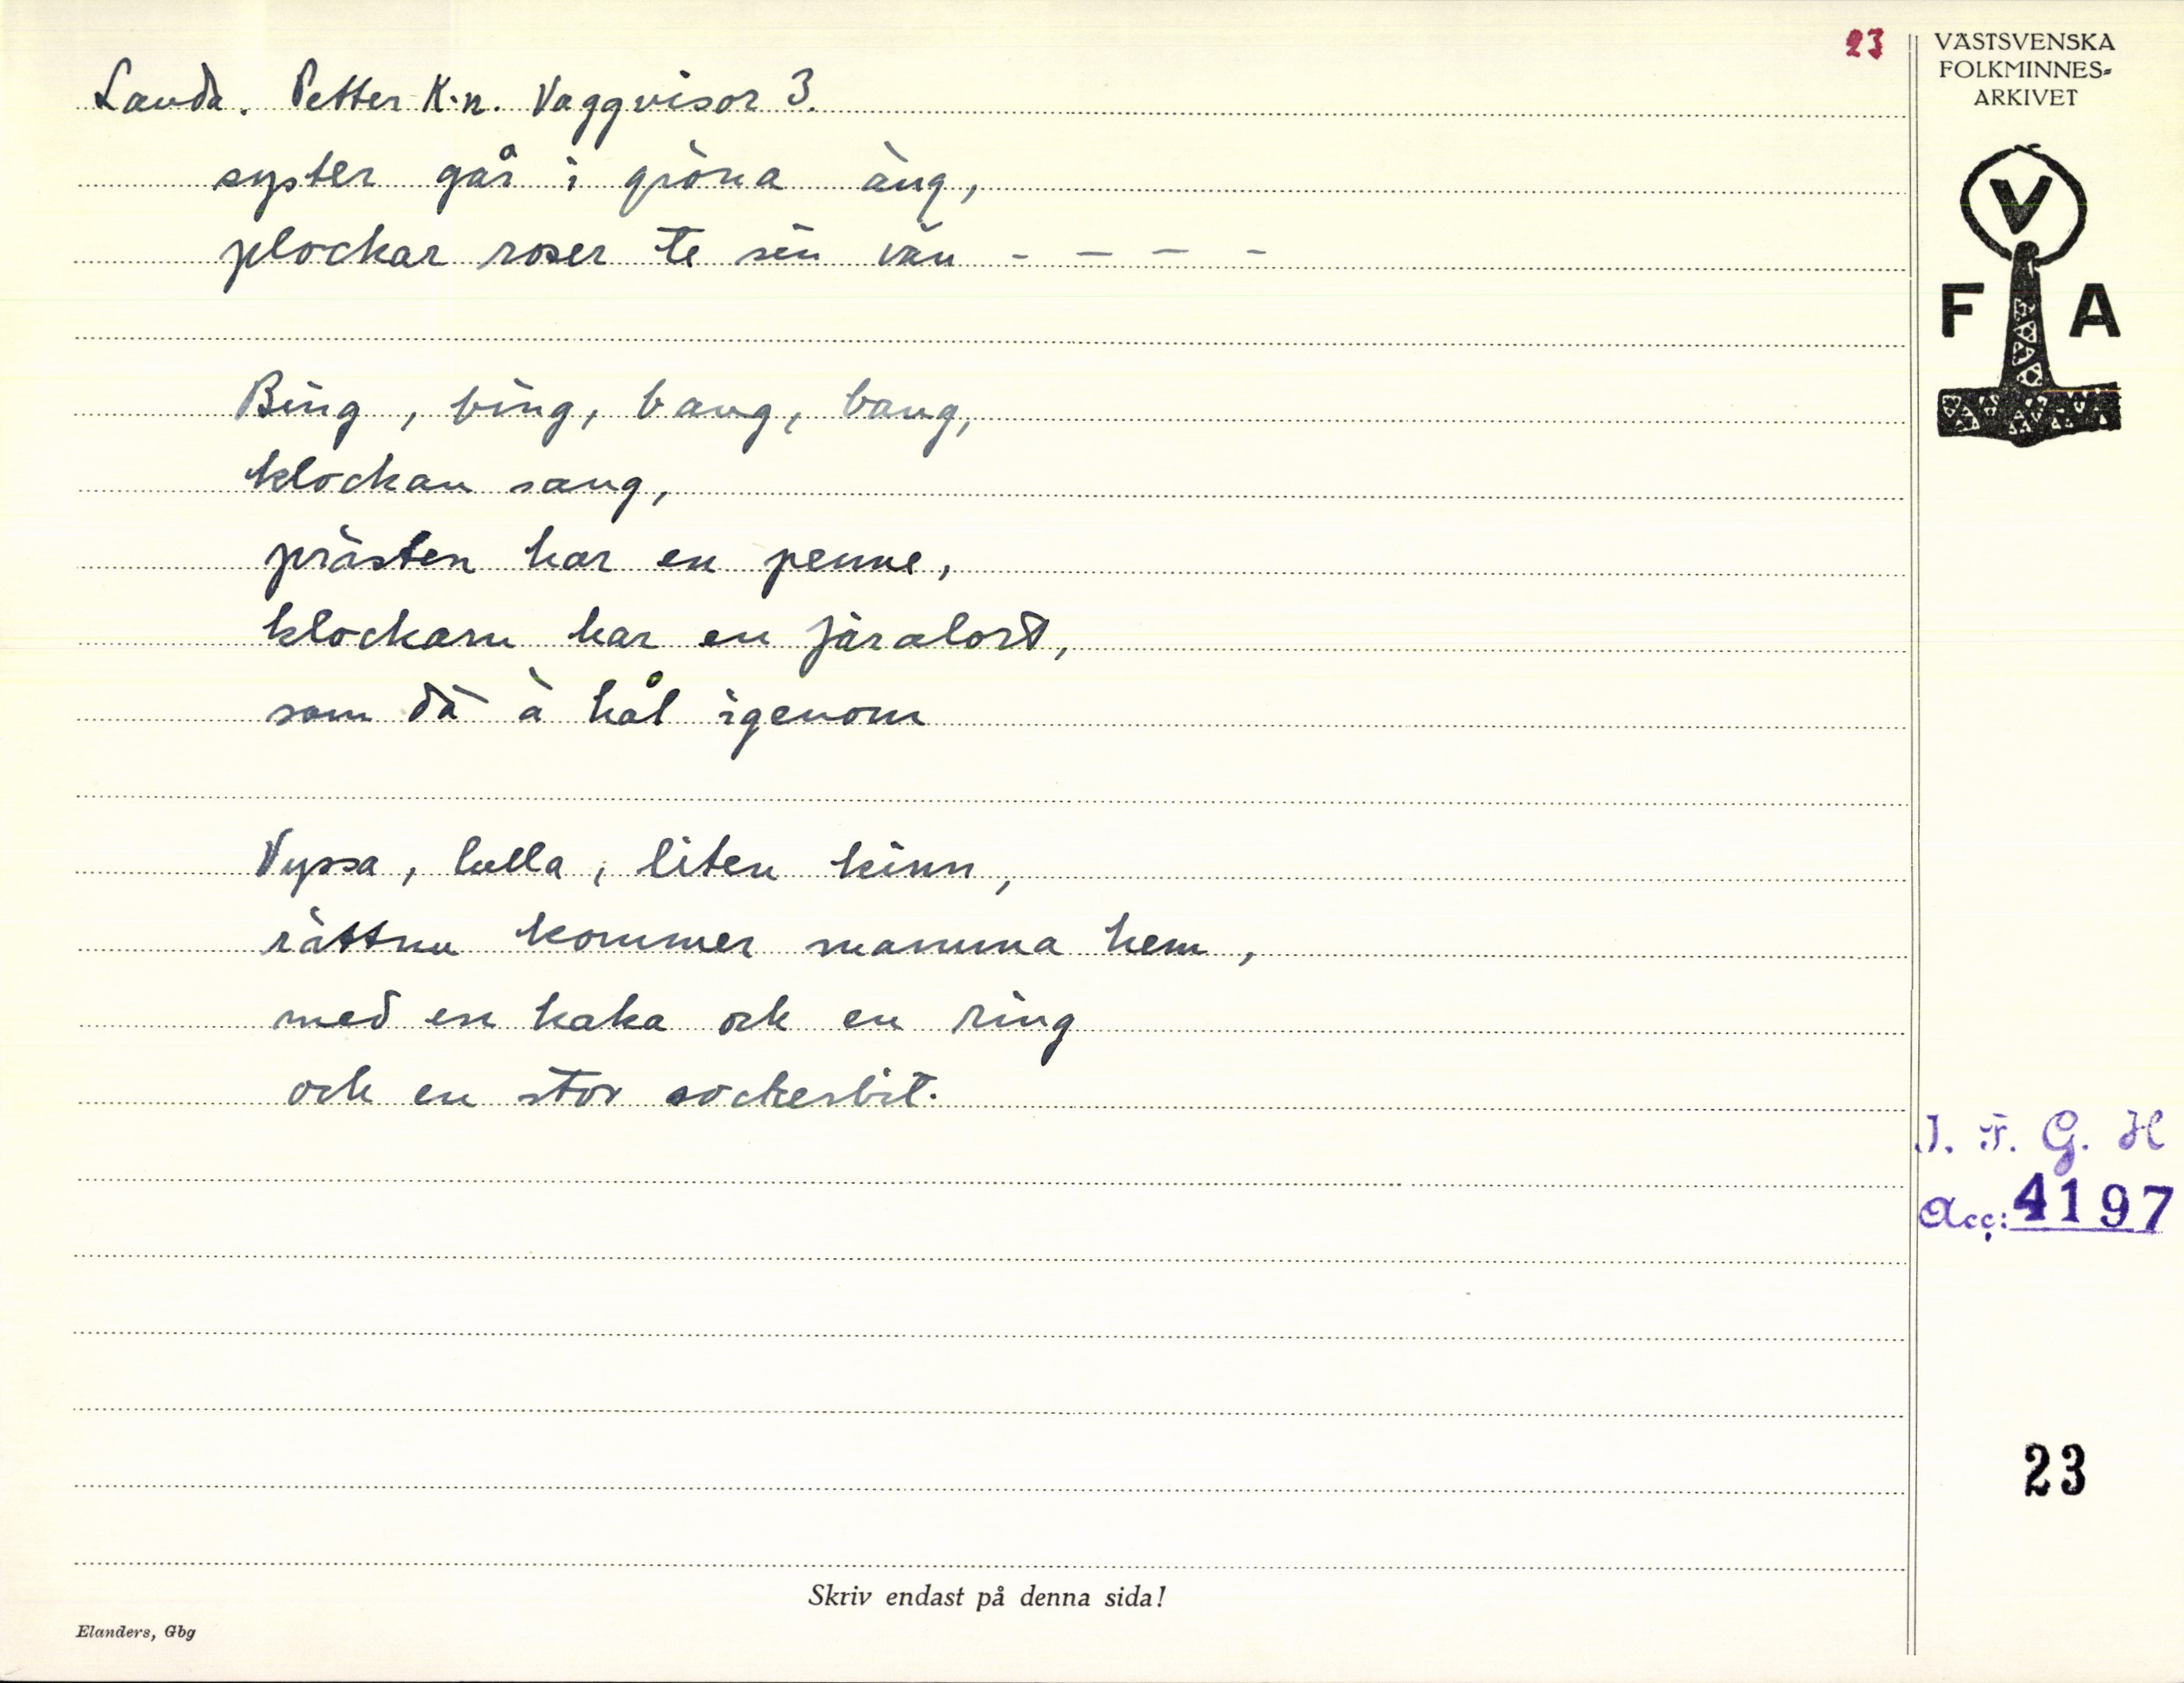 23
Landa. Petter K-n. Vaggvisor 3.
syster går i gröna äng,
plockar roser te sin vän - - - -
Bing, bing, bang, bang,
klockan sang,
prästen har en penne,
klockarn har en järalort,
som dä ä hål igenom
Vyssa, lulla, liten kinn,
rättnu kommer mamma hem,
med en kaka och en ring
och en stor sockerbit.
Skriv endast på denna sida!
Elanders, Gbg
VÄSTSVENSKA
FOLKMINNES-
ARKIVET
V
F A
I. F. G. H
Acc: 4197
23